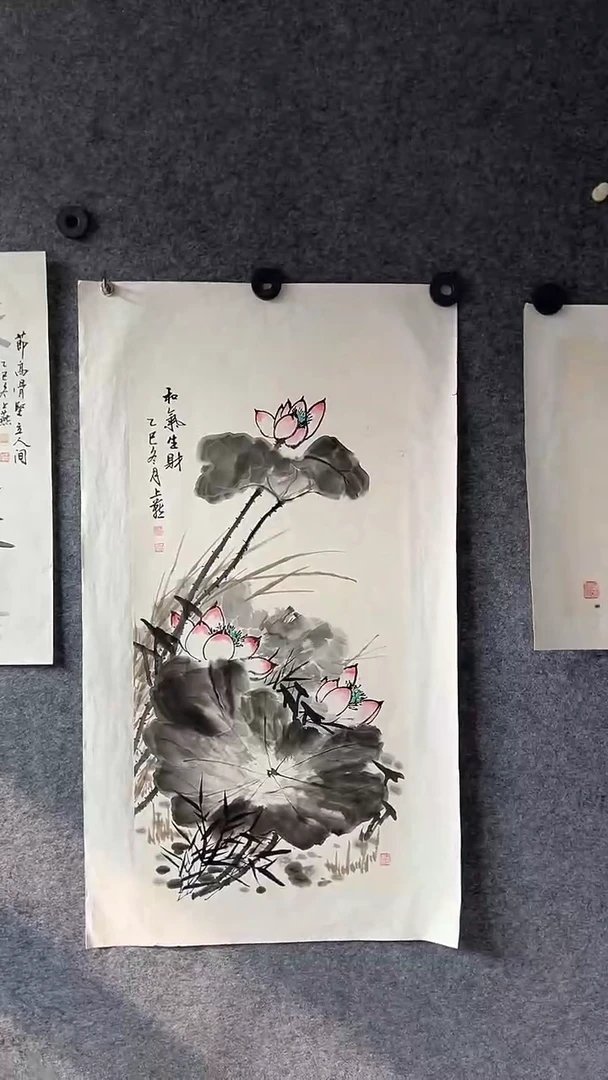 和氣生財
乙巳冬月上燕
節高骨堅立人间
乙巳冬上燕